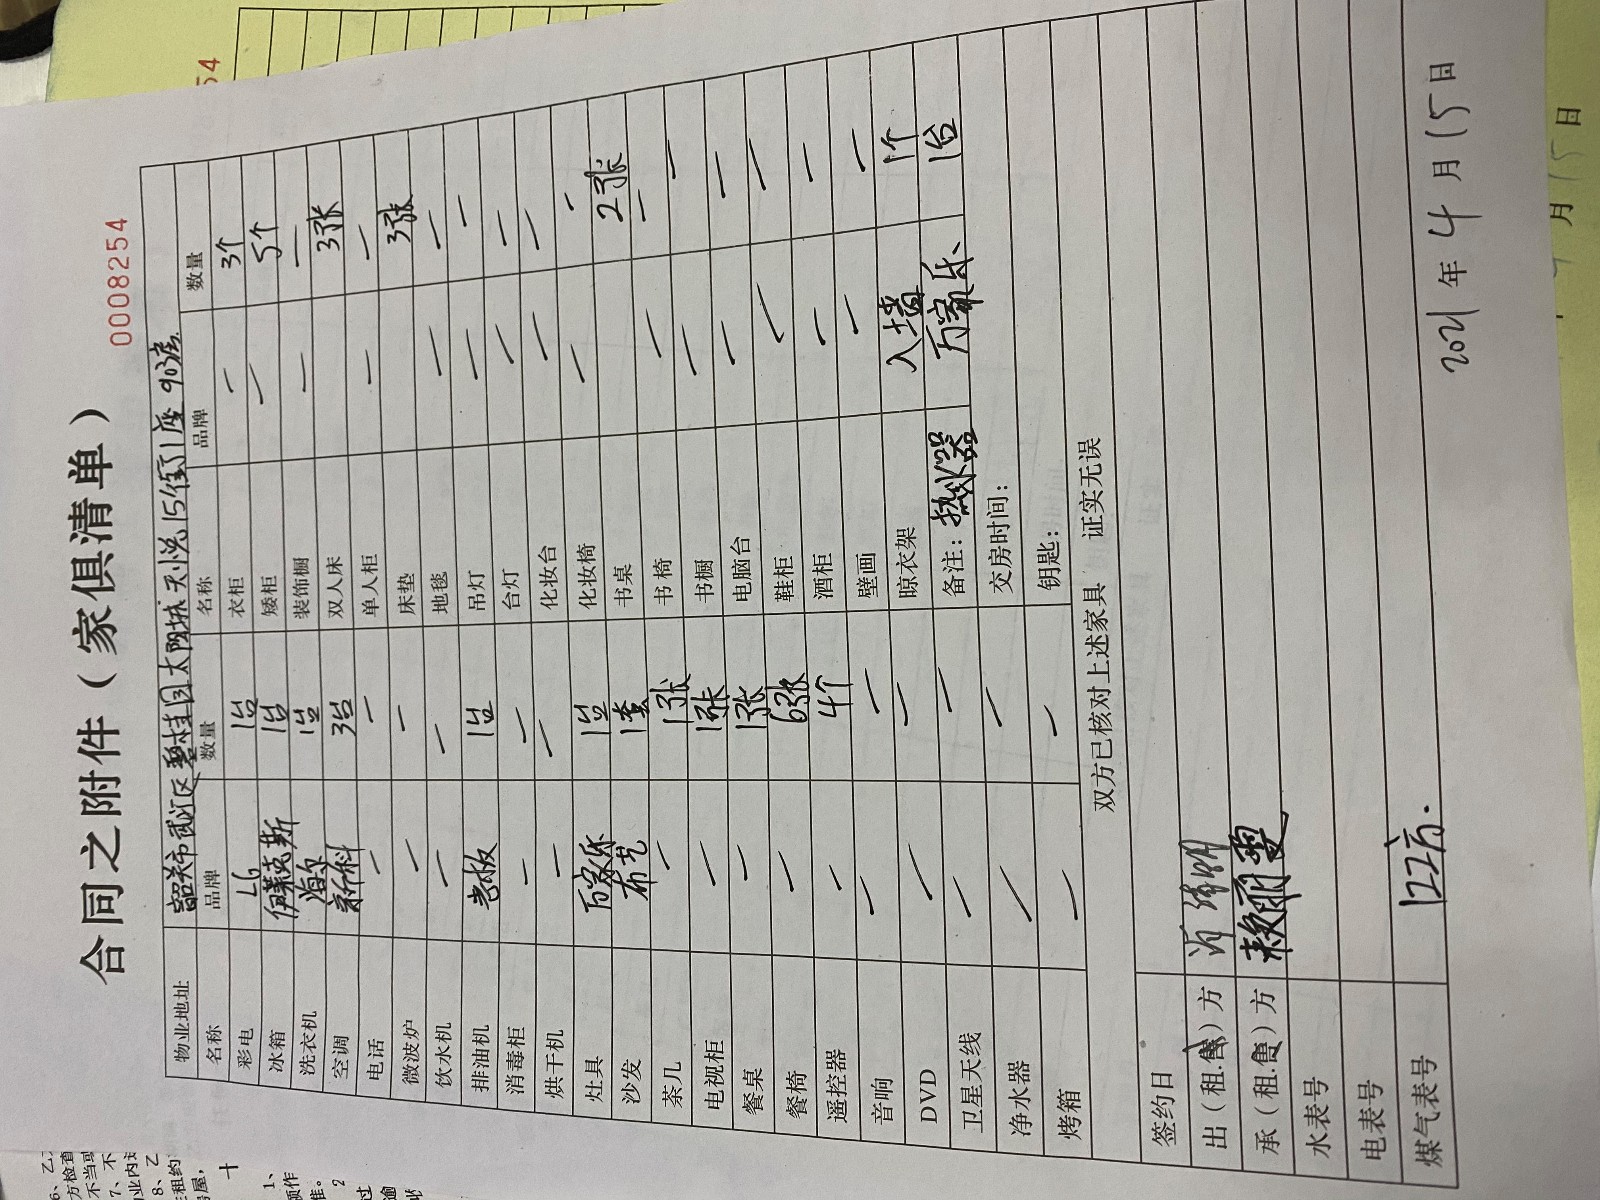 合同之附件（家俱清单）
0008254
物业地址 韶关市武江区碧桂园太阳城天悦15街1座903房
名称 品牌 数量 名称 品牌 数量
彩电 LG 1台 衣柜 — 3个
冰箱 伊莱克斯 1台 矮柜 — 5个
洗衣机 海尔 1台 装饰橱 — —
空调 新科 3台 双人床 3张
电话 — — 单人柜 — —
微波炉 — — 床垫 3张
饮水机 — — 地毯 — —
排油机 老板 1台 吊灯 — —
消毒柜 — — 台灯 — —
烘干机 — — 化妆台 — —
灶具 万家乐 1台 化妆椅 — —
沙发 布艺 1套 书桌 2张
茶几 — 1张 书椅 — —
电视柜 — 1张 书橱 — —
餐桌 — 1张 电脑台 — —
餐椅 — 6张 鞋柜 — —
遥控器 — 4个 酒柜 — —
音响 — — 壁画 — —
DVD — — 晾衣架 入墙 1个
卫星天线 — — 备注：热水器 万家乐 1台
净水器 — — 交房时间：
烤箱 — — 钥匙：
双方已核对上述家具 证实无误
签约日
出（租.售）方
承（租.售）方 赖丽雯
水表号
电表号
煤气表号 122方.
2021年4月15日
月15日